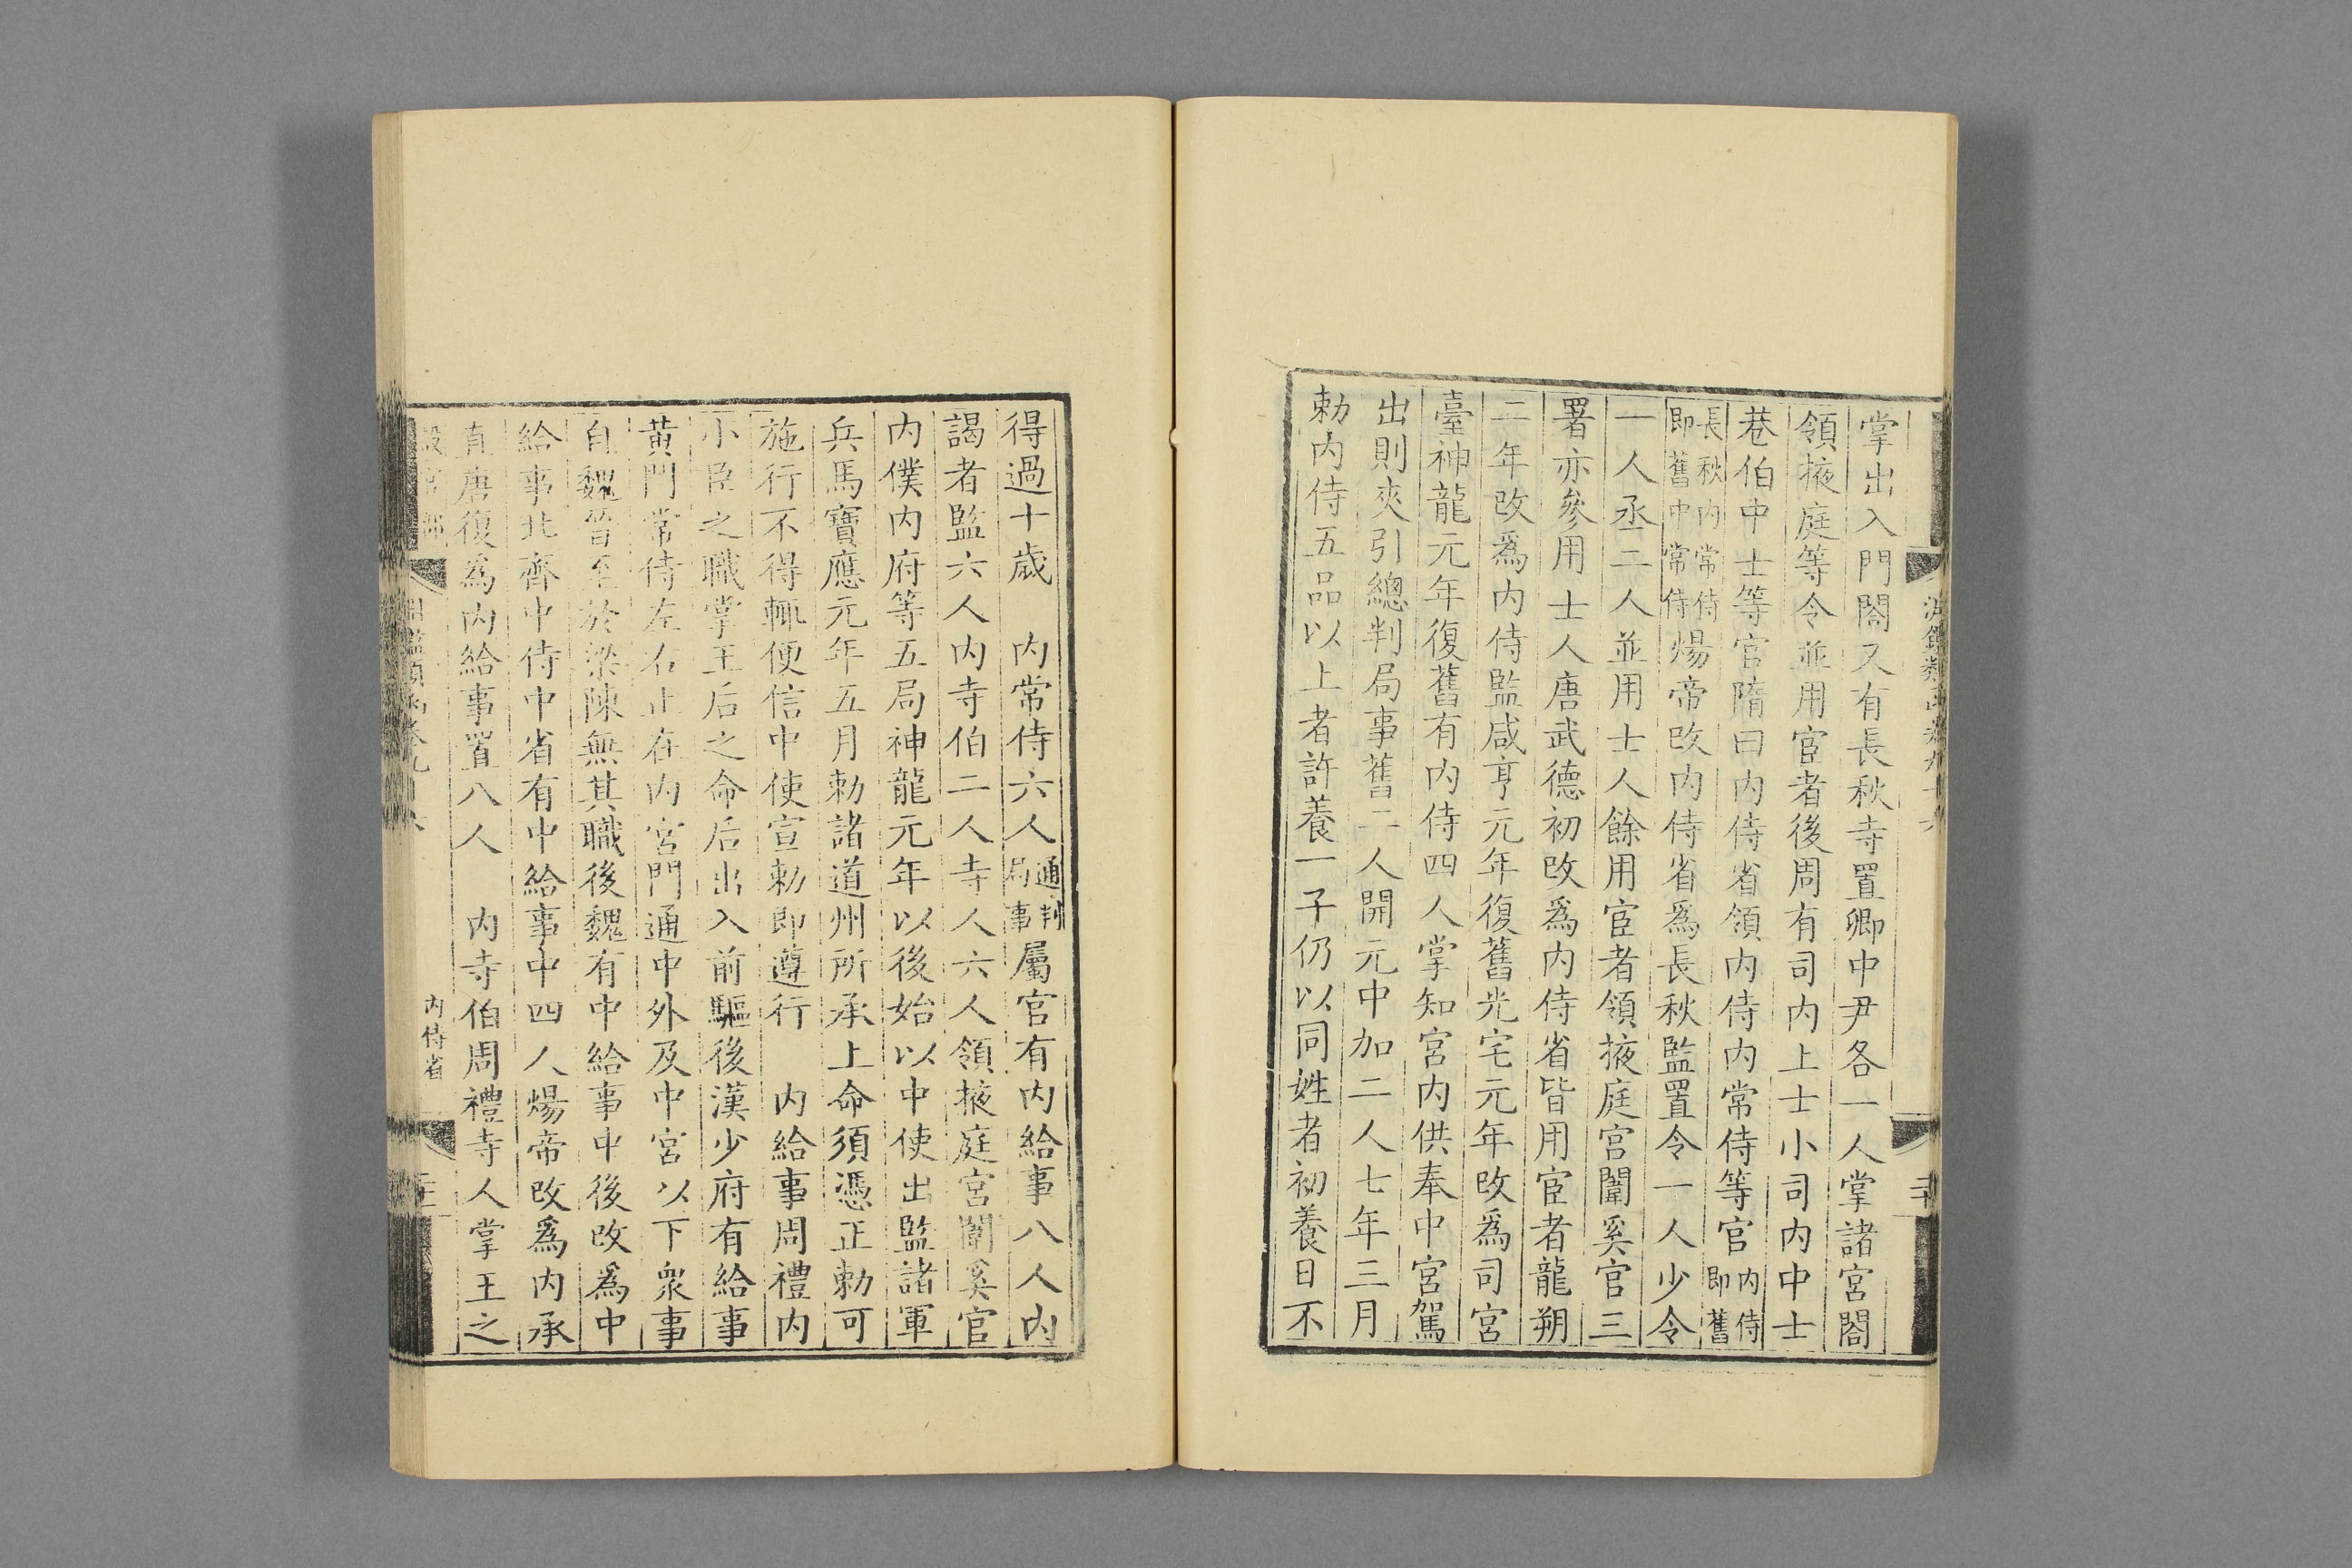 掌出入門閤又有長秋寺置卿中尹各一人掌諸宮閤
領掖庭等令並用宦者後周有司內上士小司內中士
巷伯中士等官隋曰內侍省領內侍內常侍等官內侍即舊
長秋內常侍即舊中常侍煬帝改內侍省爲長秋監置令一人少令
一人丞二人並用士人餘用宦者領掖庭宮闈奚官三
署亦參用士人唐武德初改爲內侍省皆用宦者龍朔
二年改爲內侍監咸亨元年復舊光宅元年改爲司宮
臺神龍元年復舊有內侍四人掌知宮內供奉中宮駕
出則夾引總判局事舊二人開元中加二人七年三月
勅內侍五品以上者許養一子仍以同姓者初養日不
得過十歲　內常侍六人通判局事屬官有內給事八人內
謁者監六人內寺伯二人寺人六人領掖庭宮闈奚官
內僕內府等五局神龍元年以後始以中使出監諸軍
兵馬寶應元年五月勅諸道州所承上命須憑正勅可
施行不得輒便信中使宣勅即遵行　內給事周禮內
小臣之職掌王后之命后出入前驅後漢少府有給事
黃門常侍左右止在內宮門通中外及中宮以下衆事
自魏晉至於梁陳無其職後魏有中給事中後改爲中
給事北齊中侍中省有中給事中四人煬帝改爲內承
直唐復爲內給事置八人　內寺伯周禮寺人掌王之
內侍省